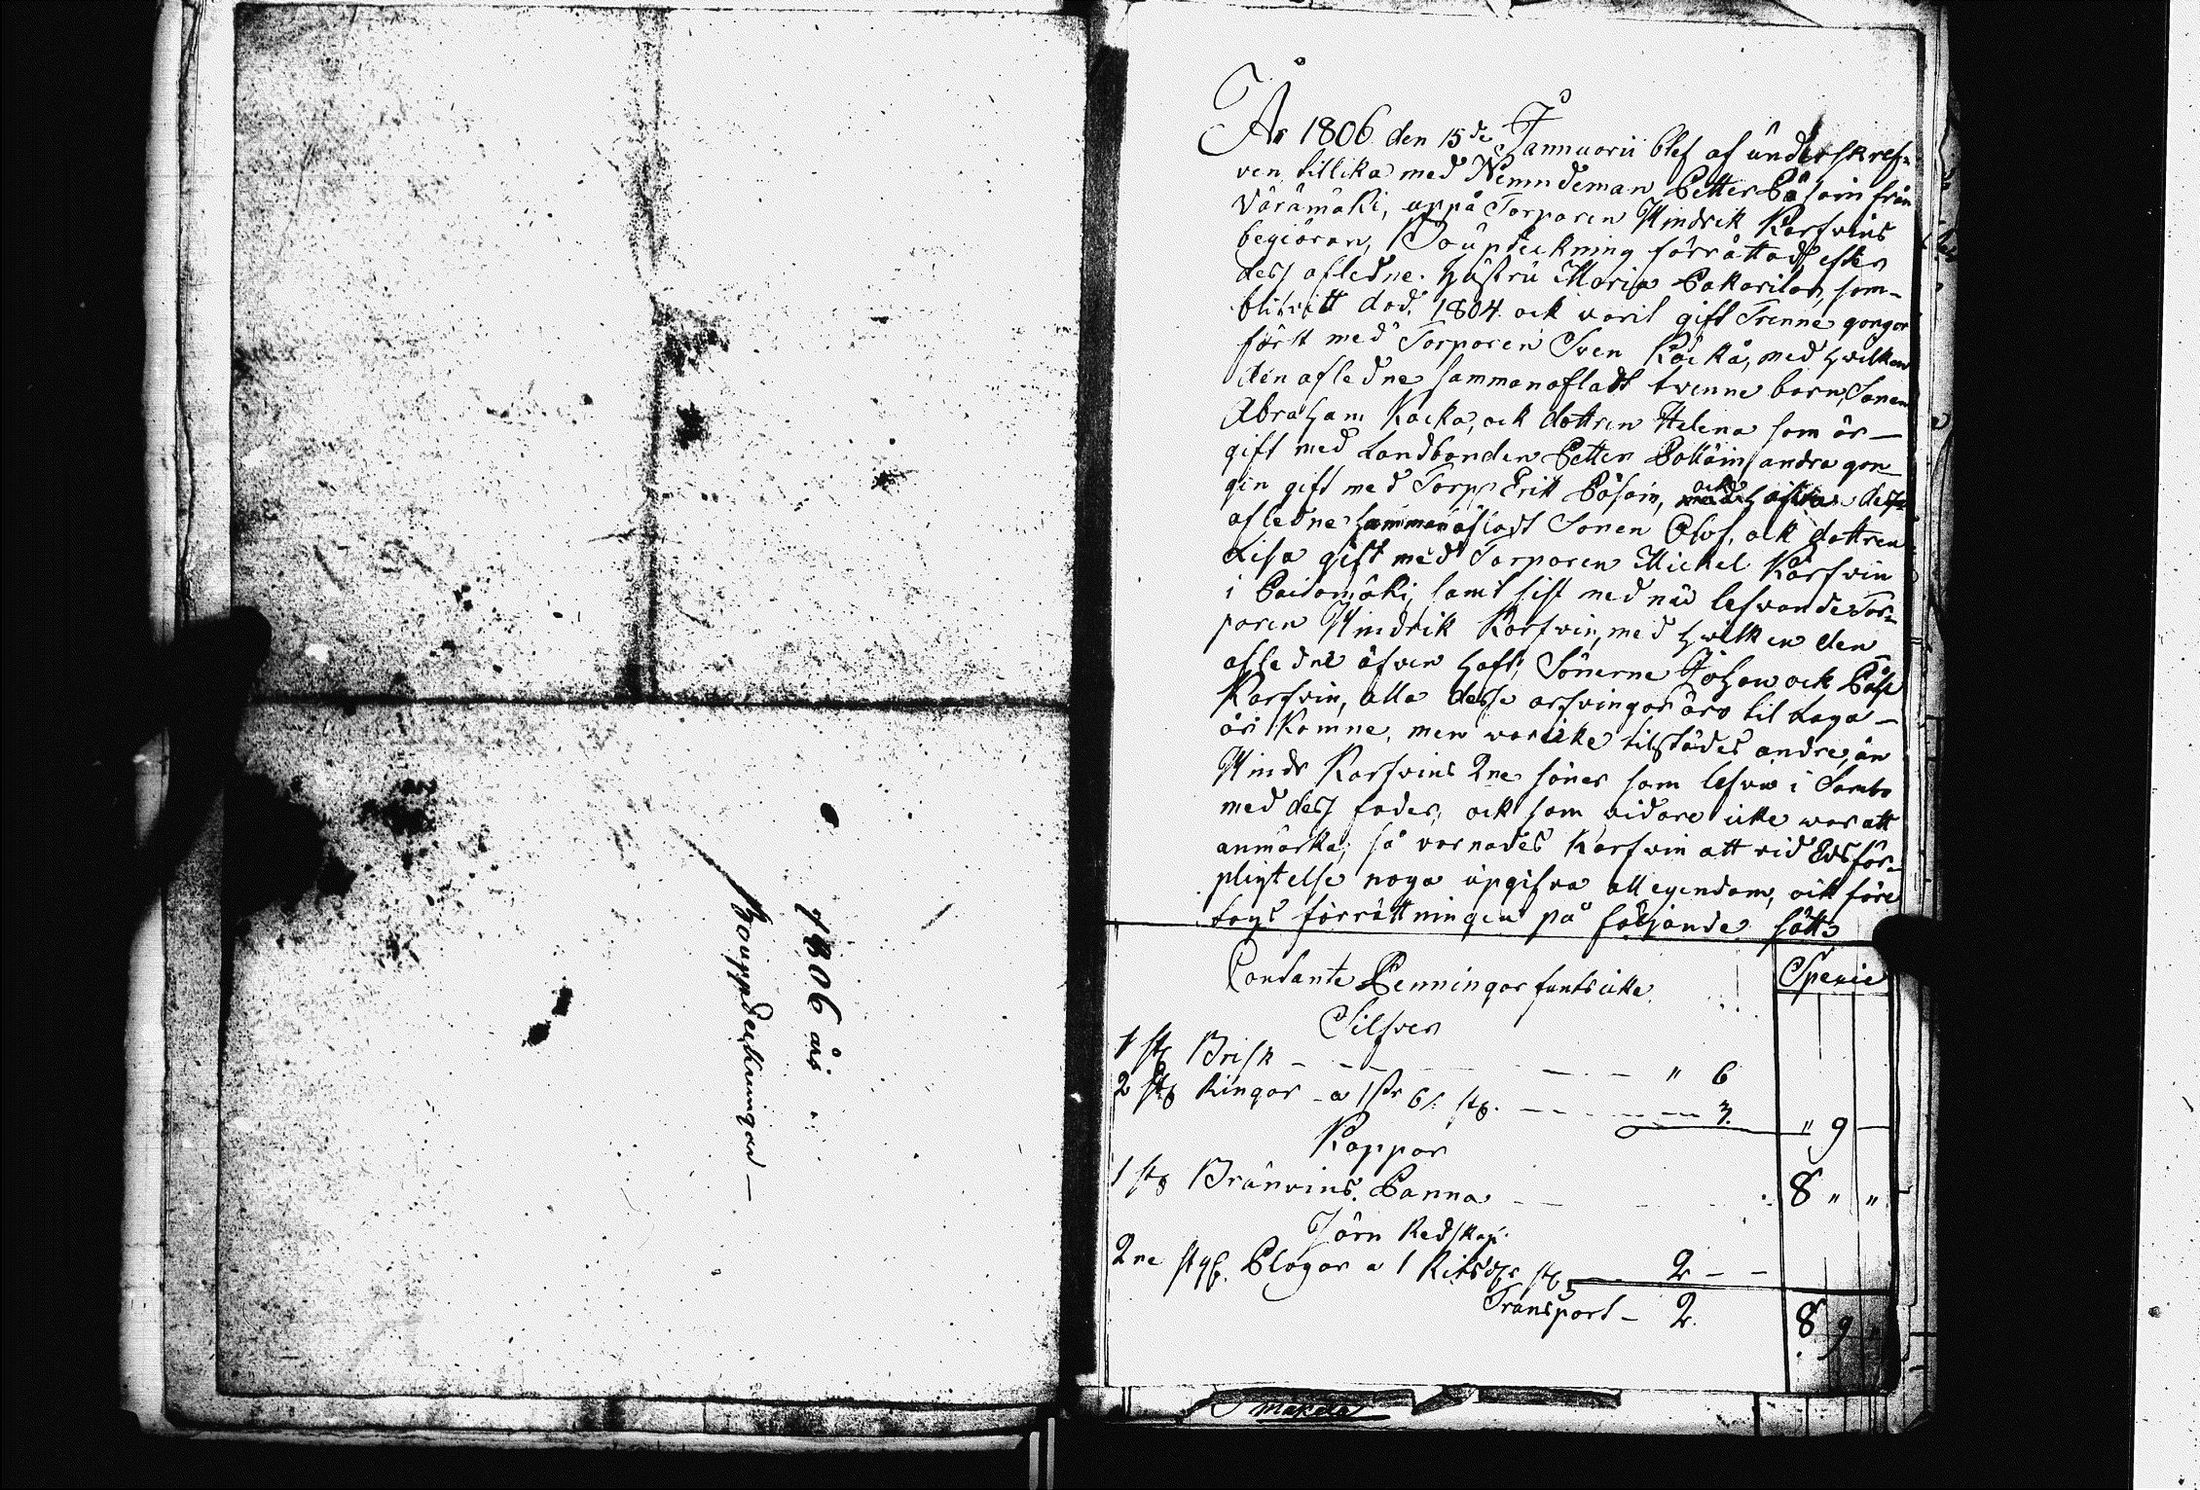 1806 års
Bouppdeckningar
År 1806 den 15de Jannuarii blef af underskref-
ven tillika med Nemndeman Petter Påsain från
Väråmäki, uppå Torparen Hindrik Karfvins
begiäran, Bouptekning förrättad efter
dess afledne hustru Maria Pakarilan, som
blifvitt död 1804 ock warit gift Trenne gongor
först med Torparen Sven Kåckå, med hwilken
den afledne sammanafladt twenne barn, Sonen
Abraham Kacka, ock dottren Helena som är
gift med Landbonden Petter Pollåin, andra gon-
gen gift med Torp: Erik Påsain, ock dess
afledne sammanafladt Sonen Olof, ock dottren
Lisa gift med Torparen Mickel Karfvin
i Paidamäki, samt sist med nu lefvande Tor-
paren Hindrik Karfvin, med hwilken den
afledne äfven haft, Sönerne Johan ock Påhl
Karfvin, alla desse arfvingar äro til Laga
år Komne, men war icke tilstädes andre, än
Hindr Karfvins 2ne söner som lefva i Sambo
med dess fader, ock som vidare icke war att
anmärka, så varnades Karfvin att vid Edsför-
pligtelse noga upgifva all egendom, ock före
togs förrättningen på följande sätt
Contante Penningar fants icke Specie
Silfver
1 st Brisk - - - - - " 6
2 st Ringar a 1 sr 6 /: st. - - - 3. " 9
Koppar
1 st Bränvins Panna - - 8 " "
Järn Redskap.
2ne styf. Plogar a 1 Riksd st - 2 - -
Transport - 2. 8 9 "